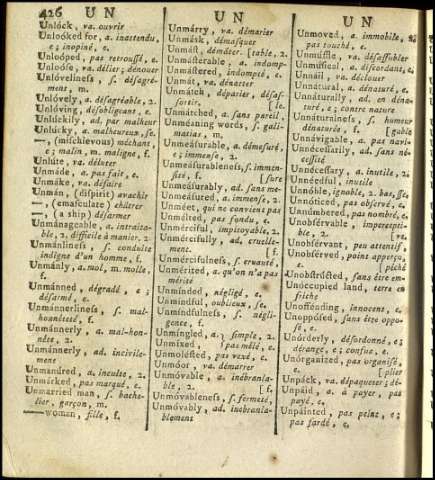 426 U N
U N
U N
Unlóck, va. ouvrir
Unloóked for, a. inattendu,
e; inopiné, e.
Unloóped, pas retroussé, e.
Unloóse, va. délier; dénouer
Unlóveliness, s. désagré-
ment, m.
Unlóvely, a. désagréable, 2.
Unlóving, désobligeant, e.
Unlúckily, ad. par malheur
Unlúcky, a. malheureux, se.
—, (mischievous) méchant,
e; malin, m. maligne, f.
Unlúte, va. déluter
Unmáde, a. pas fait, e.
Unmáke, va. défaire
Unmán, (dispirit) avachir
—, (emasculate) châtrer
—, (a ship) désarmer
Unmánageable, a. intraita-
ble, 2. difficile à manier, 2.
Unmánliness, s. conduite
indigne d'un homme, f.
Unmánly, a. mol, m. molle,
f.
Unmánned, dégradé, e;
désarmé, e.
Unmánnerliness, s. mal-
honnêteté, f.
Unmánnerly, a. mal-hon-
nête, 2.
Unmánnerly, ad. incivile-
ment
Unmanúred, a. inculte, 2.
Unmárked, pas marqué, e.
Unmarried man, s. bache-
lier, garçon, m.
—women, fille, f.
Unmárry, va. démarier
Unmásk, démasquer
Unmást, démâter [table, 2.
Unmásterable, a. indomp-
Unmástered, indompté, e.
Unmát, va. dénatter
Unmátch, déparier, désas-
sortir. [le.
Unmátched, a. sans pareil,
Unmeáning words, s. gali-
matias, m.
Unmeásurable, a. démesuré,
e; immense, 2.
Unmeásurableness, s. immen-
sité, f. [sure
Unmeásurably, ad. sans me-
Unmeásured, a. immense, 2.
Unméet, qui ne convient pas
Unmélted, pas fondu, e.
Unmérciful, impitoyable, 2.
Unmércifully, ad. cruelle-
ment. [f.
Unmércifulness, s. cruauté,
Unmérited, a. qu'on n'a pas
mérité
Unmínded, négligé, e.
Unmíndful, oublieux, se.
Unmíndfulness, s. négli-
gence, f.
Unmíngled, a. simple, 2.
Unmíxed, pas mêlé, e.
Unmolésted, pas vexé, e.
Unmóor, va. démarrer
Unmóvable, a. inébranla-
ble, 2. [f.
Unmóvableness, s. fermeté,
Unmóvably, ad. inébranla-
blement
Unmóved, a. immobile, 2;
pas touché, e.
Unmúffle, va. désaffubler
Unmúsical, a. discordant, e.
Unnáil, va. déclouer
Unnátural, a. dénaturé, e.
Unnáturally, ad. en déna-
turé, e; contre nature
Unnáturalness, s. humeur
dénaturée, f. [gable
Unnávigable, a. pas navi-
Unnécessarily, ad. sans né-
cessité
Unnécessary, a. inutile, 2.
Unnéedful, inutile
Unnóble, ignoble, 2. bas, sse.
Unnóticed, pas observé, e.
Unnúmbered, pas nombré, e.
Unobsérvable, impercepti-
ble, 2.
Unobsérvant, peu attentif,
Unobsérved, point apperçu,
e. [pêché
Unobstrúcted, sans être em-
Unóccupied land, terre en
friche
Unoffénding, innocent, e.
Unoppósed, sans être oppo-
sé, e.
Unórderly, désordonné, e;
dérangé, e; confus, e.
Unórganized, pas organisé,
e. [plier
Unpáck, va. dépaqueter; dé-
Unpáid, a. à payer, pas
payé, e.
Unpáinted, pas peint, e;
pas fardé, e.